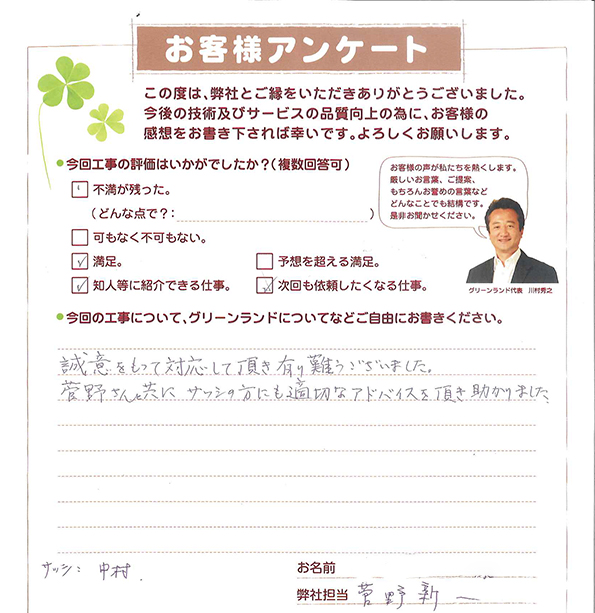 お客様アンケート
この度は、弊社とご縁をいただきありがとうございました。
今後の技術及びサービスの品質向上の為に、お客様の
感想をお書き下されば幸いです。よろしくお願いします。
●今回工事の評価はいかがでしたか？（複数回答可）
不満が残った。
（どんな点で？： ）
可もなく不可もない。
満足。
予想を超える満足。
知人等に紹介できる仕事。
次回も依頼したくなる仕事。
お客様の声が私たちを熱くします。
厳しいお言葉、ご提案、
もちろんお誉めの言葉など
どんなことでも結構です。
是非お聞かせください。
グリーンランド代表 川村秀之
●今回の工事について、グリーンランドについてなどご自由にお書きください。
誠意をもって対応して頂き有り難うございました。
菅野さんと共に サッシの方にも適切なアドバイスを頂き助かりました
サッシ： 中村
お名前
弊社担当 菅野 新一